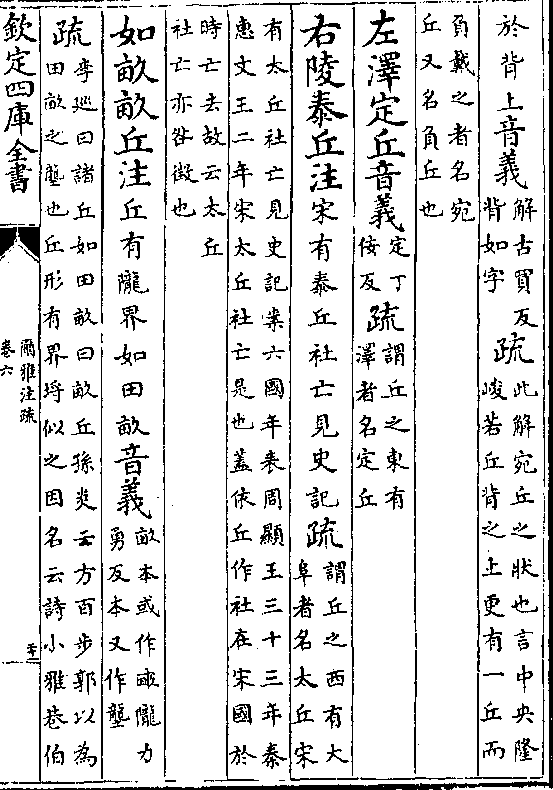 於背上音義解古買反背如字疏此解宛丘之狀也言中央隆峻若丘背之上更有一丘而
負戴之者名宛丘又名負丘也
左澤定丘音義定丁佞反疏謂丘之東有澤者名定丘
右陵泰丘注宋有泰丘社亡見史記疏謂丘之西有大阜者名太丘宋
有太丘社亡見史記案六國年表周顯王三十三年秦惠文王二年宋太丘社亡是也蓋依丘作社在宋國於
時亡去故云太丘社亡亦咎徵也
如畝畝丘注丘有隴界如田畝音義畝本或作畮隴力勇反本又作壟
疏李巡曰諸丘如田畝曰畝丘孫炎云方百步郭以為田畝之壟也丘形有界埒似之因名云詩小雅巷伯
欽定四庫全書
爾雅注疏
卷六